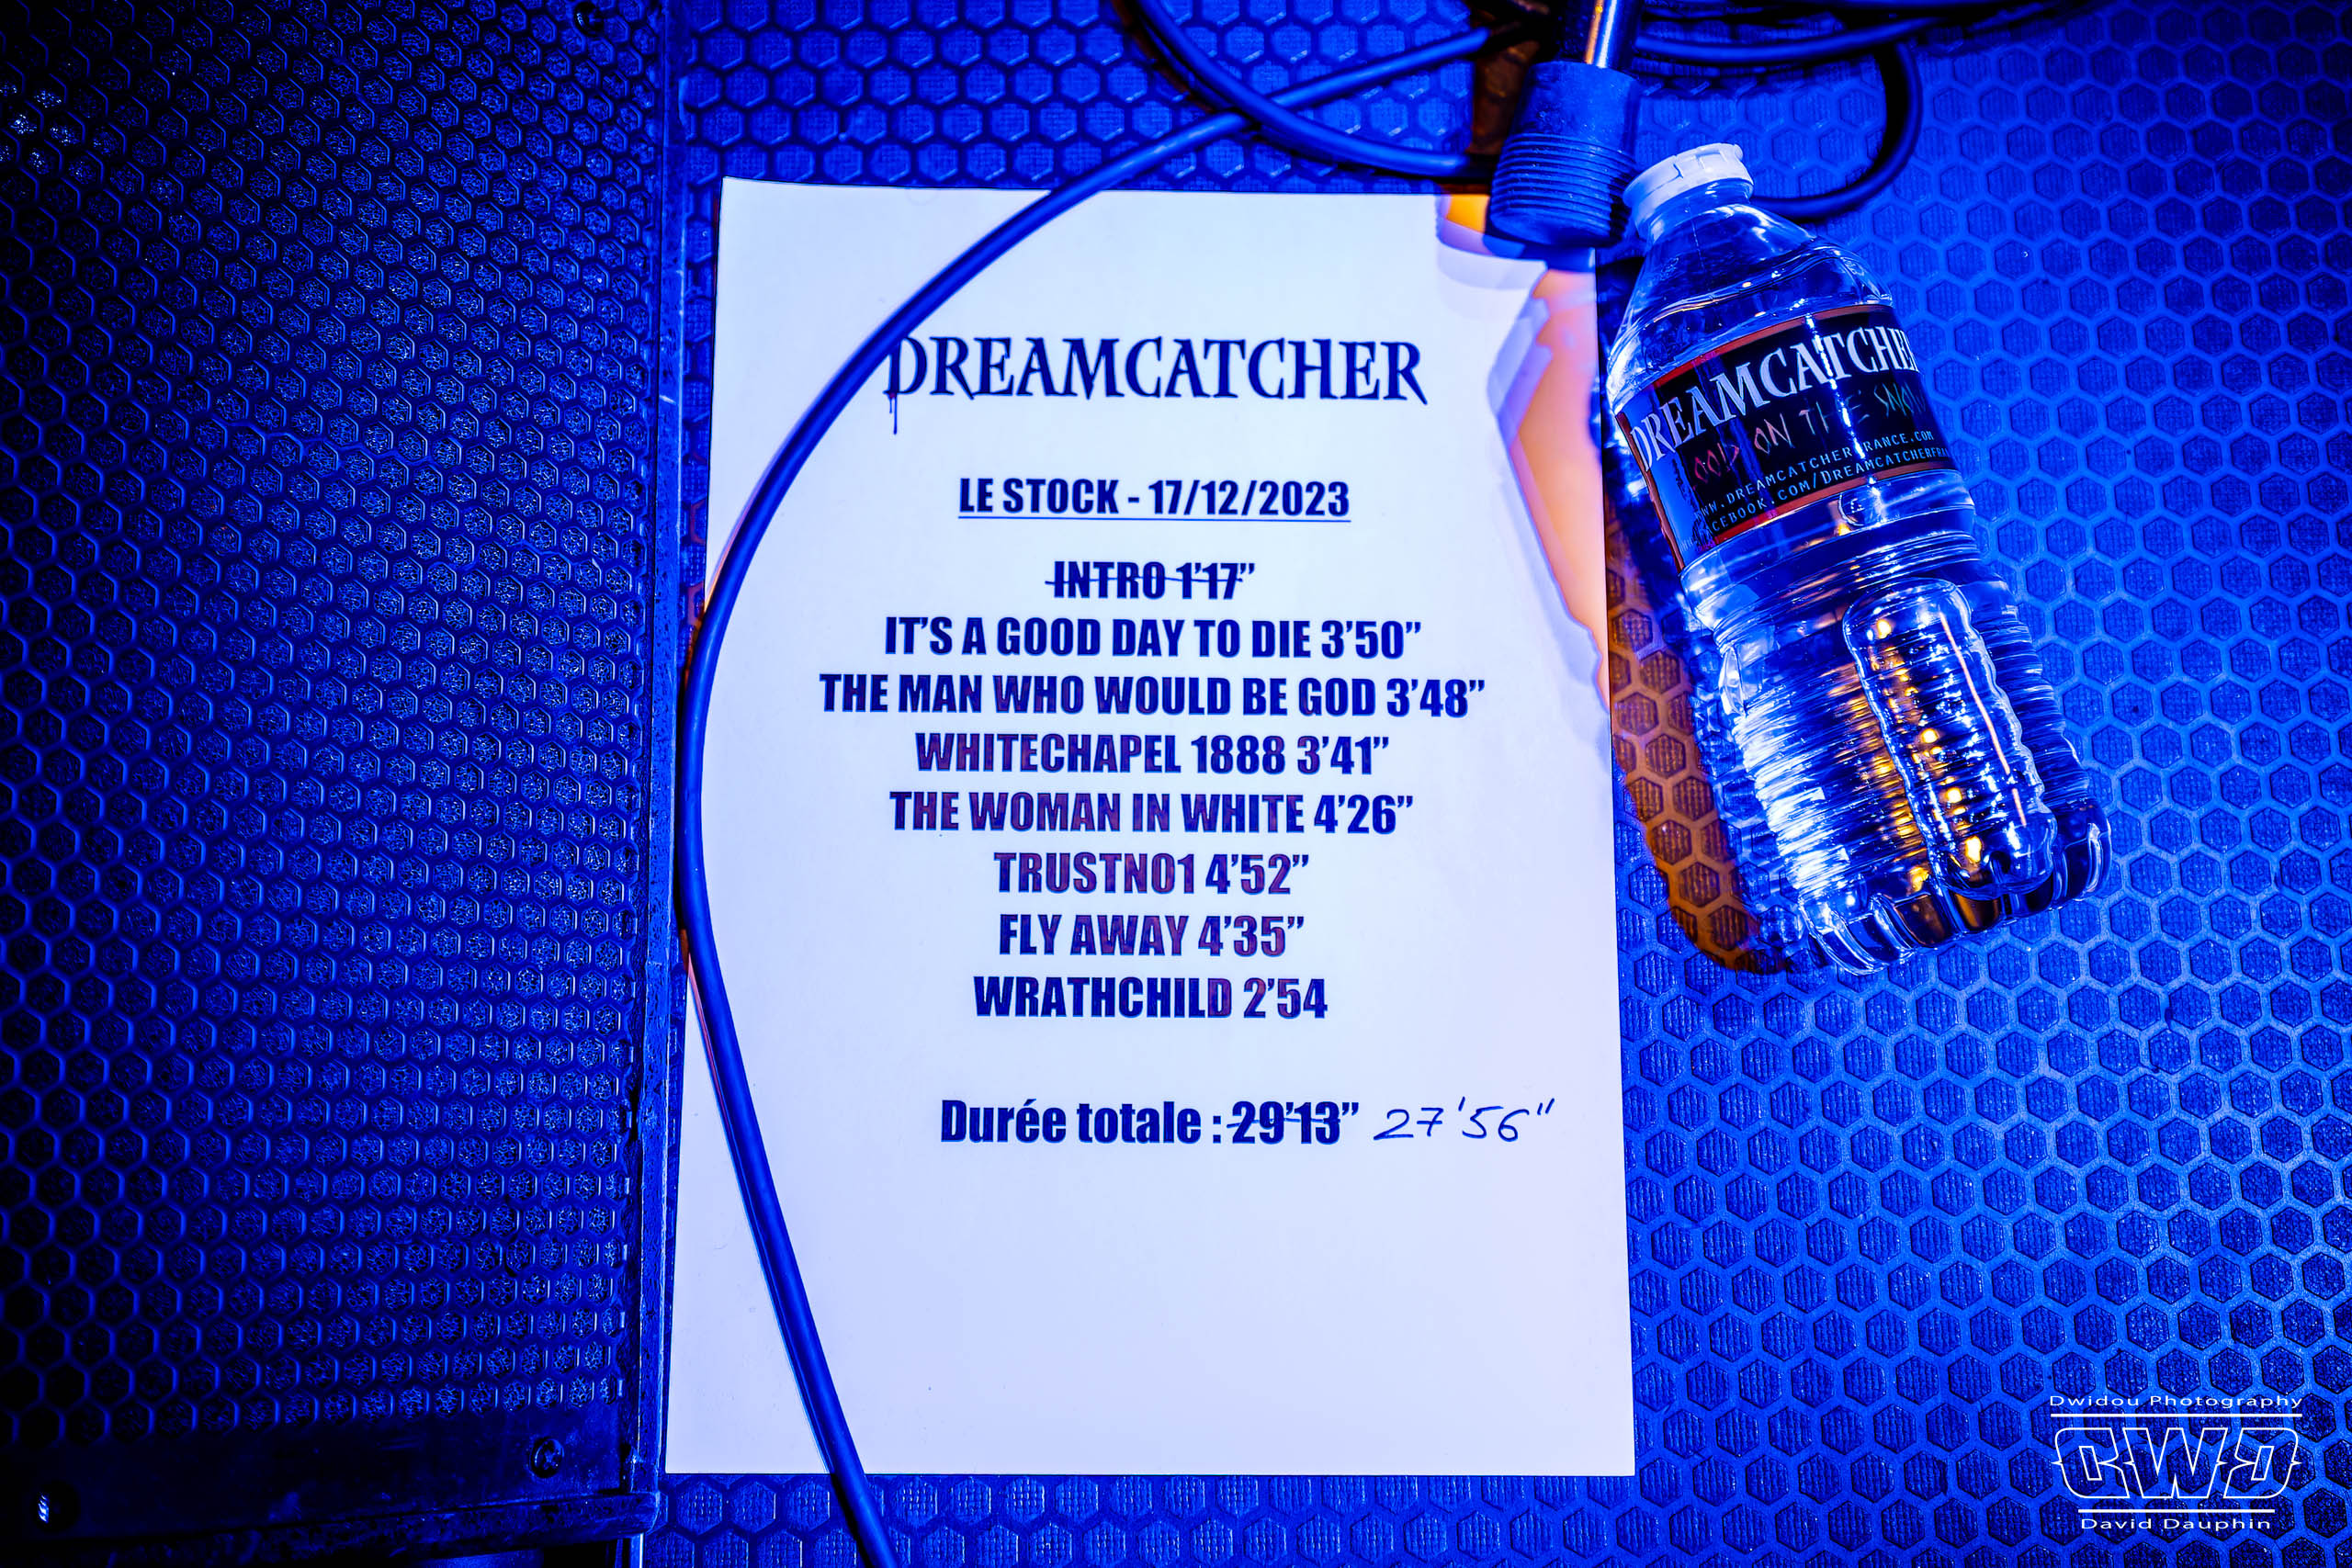 DREAMCATCHER
LE STOCK - 17/12/2023
INTRO 1'17”
IT'S A GOOD DAY TO DIE 3'50”
THE MAN WHO WOULD BE GOD 3'48”
WHITECHAPEL 1888 3'41”
THE WOMAN IN WHITE 4'26”
TRUSTNO1 4'52”
FLY AWAY 4'35”
WRATHCHILD 2'54
Durée totale : 29'13” 27'56"
DREAMCATCHER
OOD ON THE SNOW
WWW.DREAMCATCHERFRANCE.COM
FACEBOOK.COM/DREAMCATCHERFRA
Dwidou Photography
DWD
David Dauphin